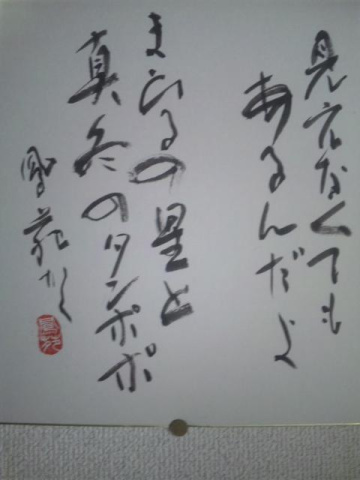 見えなくても
あるんだよ
まひるの星と
真冬のタンポポ
鳳苑かく
鳳苑